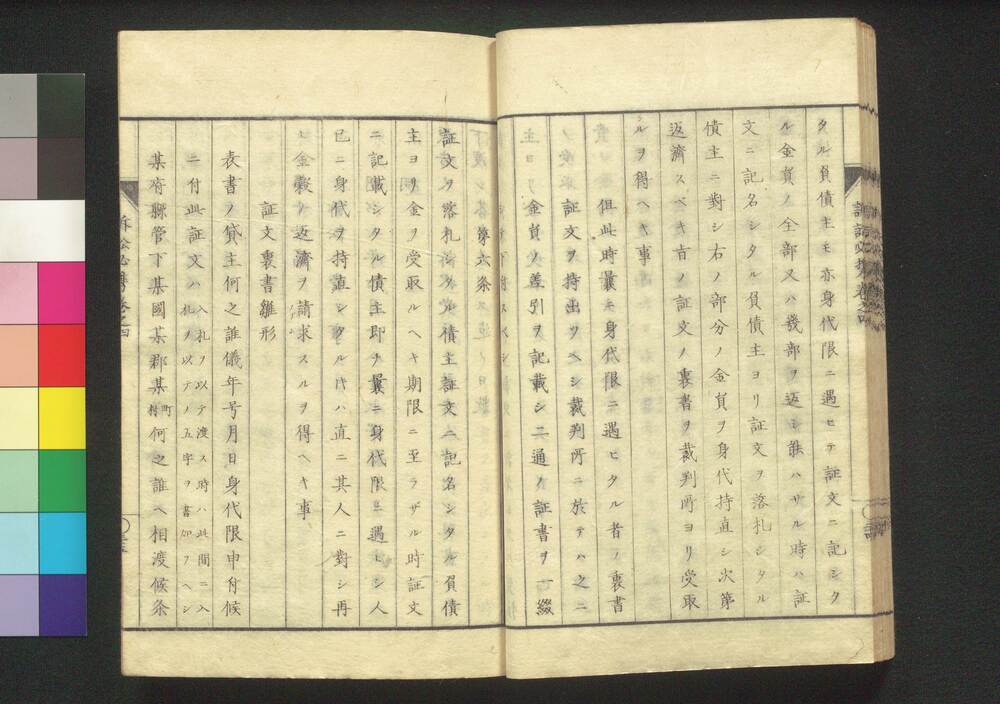 タル負債主モ亦身代限ニ遇ヒテ証文ニ記シタ
ル金員ノ全部又ハ幾部ヲ返シ能ハサル時ハ証
文ニ記名シタル負債主ヨリ証文ヲ落札シタル
債主ニ對シ右ノ部分ノ金員ヲ身代持直シ次第
返濟スベキ旨ノ証文ノ裏書ヲ裁判所ヨリ受取
ルヲ得ヘキ事
但此時曩ニ身代限ニ遇ヒタル者ノ裏書
証文ヲ持出サヘシ裁判所ニ於テハ之ニ
金員ノ差引ヲ記載シ二通ノ証書ヲ一綴
第六条
証文ヲ落札シタル債主証文ニ記名シタル負債
主ヨリ金ヲ受取ルヘキ期限ニ至ラザル時証文
ニ記載シタル債主即チ曩ニ身代限ニ遇ヒシ人
已ニ身代ヲ持直シタル片ハ直ニ其人ニ對シ再
ヒ金穀ノ返濟ヲ請求スルヲ得ヘキ事
証文裏書雛形
表書ノ貸主何之誰儀年号月日身代限申付候
ニ付此証文ハ入札ヲ以テ渡ス時ハ此間ニ入札ヲ以テノ五字ヲ書加フヘシ
某府縣管下某國某郡某町村何之誰ヘ相渡候条
訴訟必携巻之四